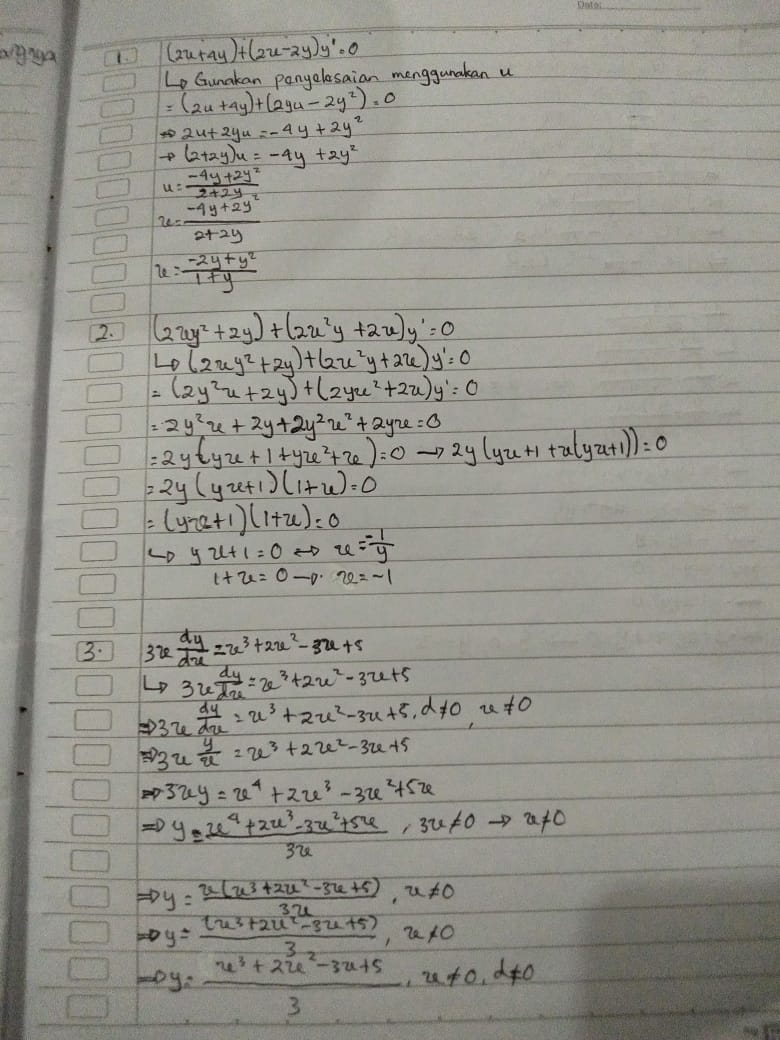 Date:
1. (2x+4y)+(2x-2y)y'=0
↳ Gunakan penyelesaian menggunakan x
= (2x+4y)+(2yx-2y²)=0
⇒ 2x+2yx=-4y+2y²
→ (2+2y)x = -4y+2y²
x = (-4y+2y²)/(2+2y)
x = (-4y+2y²)/(2+2y)
x = (-2y+y²)/(1+y)
2. (2xy²+2y)+(2x²y+2x)y'=0
↳ (2xy²+2y)+(2x²y+2x)y'=0
= (2y²x+2y)+(2yx²+2x)y'=0
= 2y²x+2y+2y²x²+2yx=0
= 2y(yx+1+yx²+x)=0 → 2y(yx+1+x(yx+1))=0
= 2y(yx+1)(1+x)=0
= (yx+1)(1+x)=0
↳ yx+1=0 ↔ x=-1/y
1+x=0 → x=-1
3. 3x dy/dx = x³+2x²-3x+5
↳ 3x dy/dx = x³+2x²-3x+5
⇒ 3x dy/dx = x³+2x²-3x+5, d≠0, x≠0
⇒ 3x y/x = x³+2x²-3x+5
⇒ 3xy = x⁴+2x³-3x²+5x
⇒ y = (x⁴+2x³-3x²+5x)/3x, 3x≠0 → x≠0
⇒ y = x(x³+2x²-3x+5)/3x, x≠0
⇒ y = (x³+2x²-3x+5)/3, x≠0
⇒ y = (x³+2x²-3x+5)/3, x≠0, d≠0